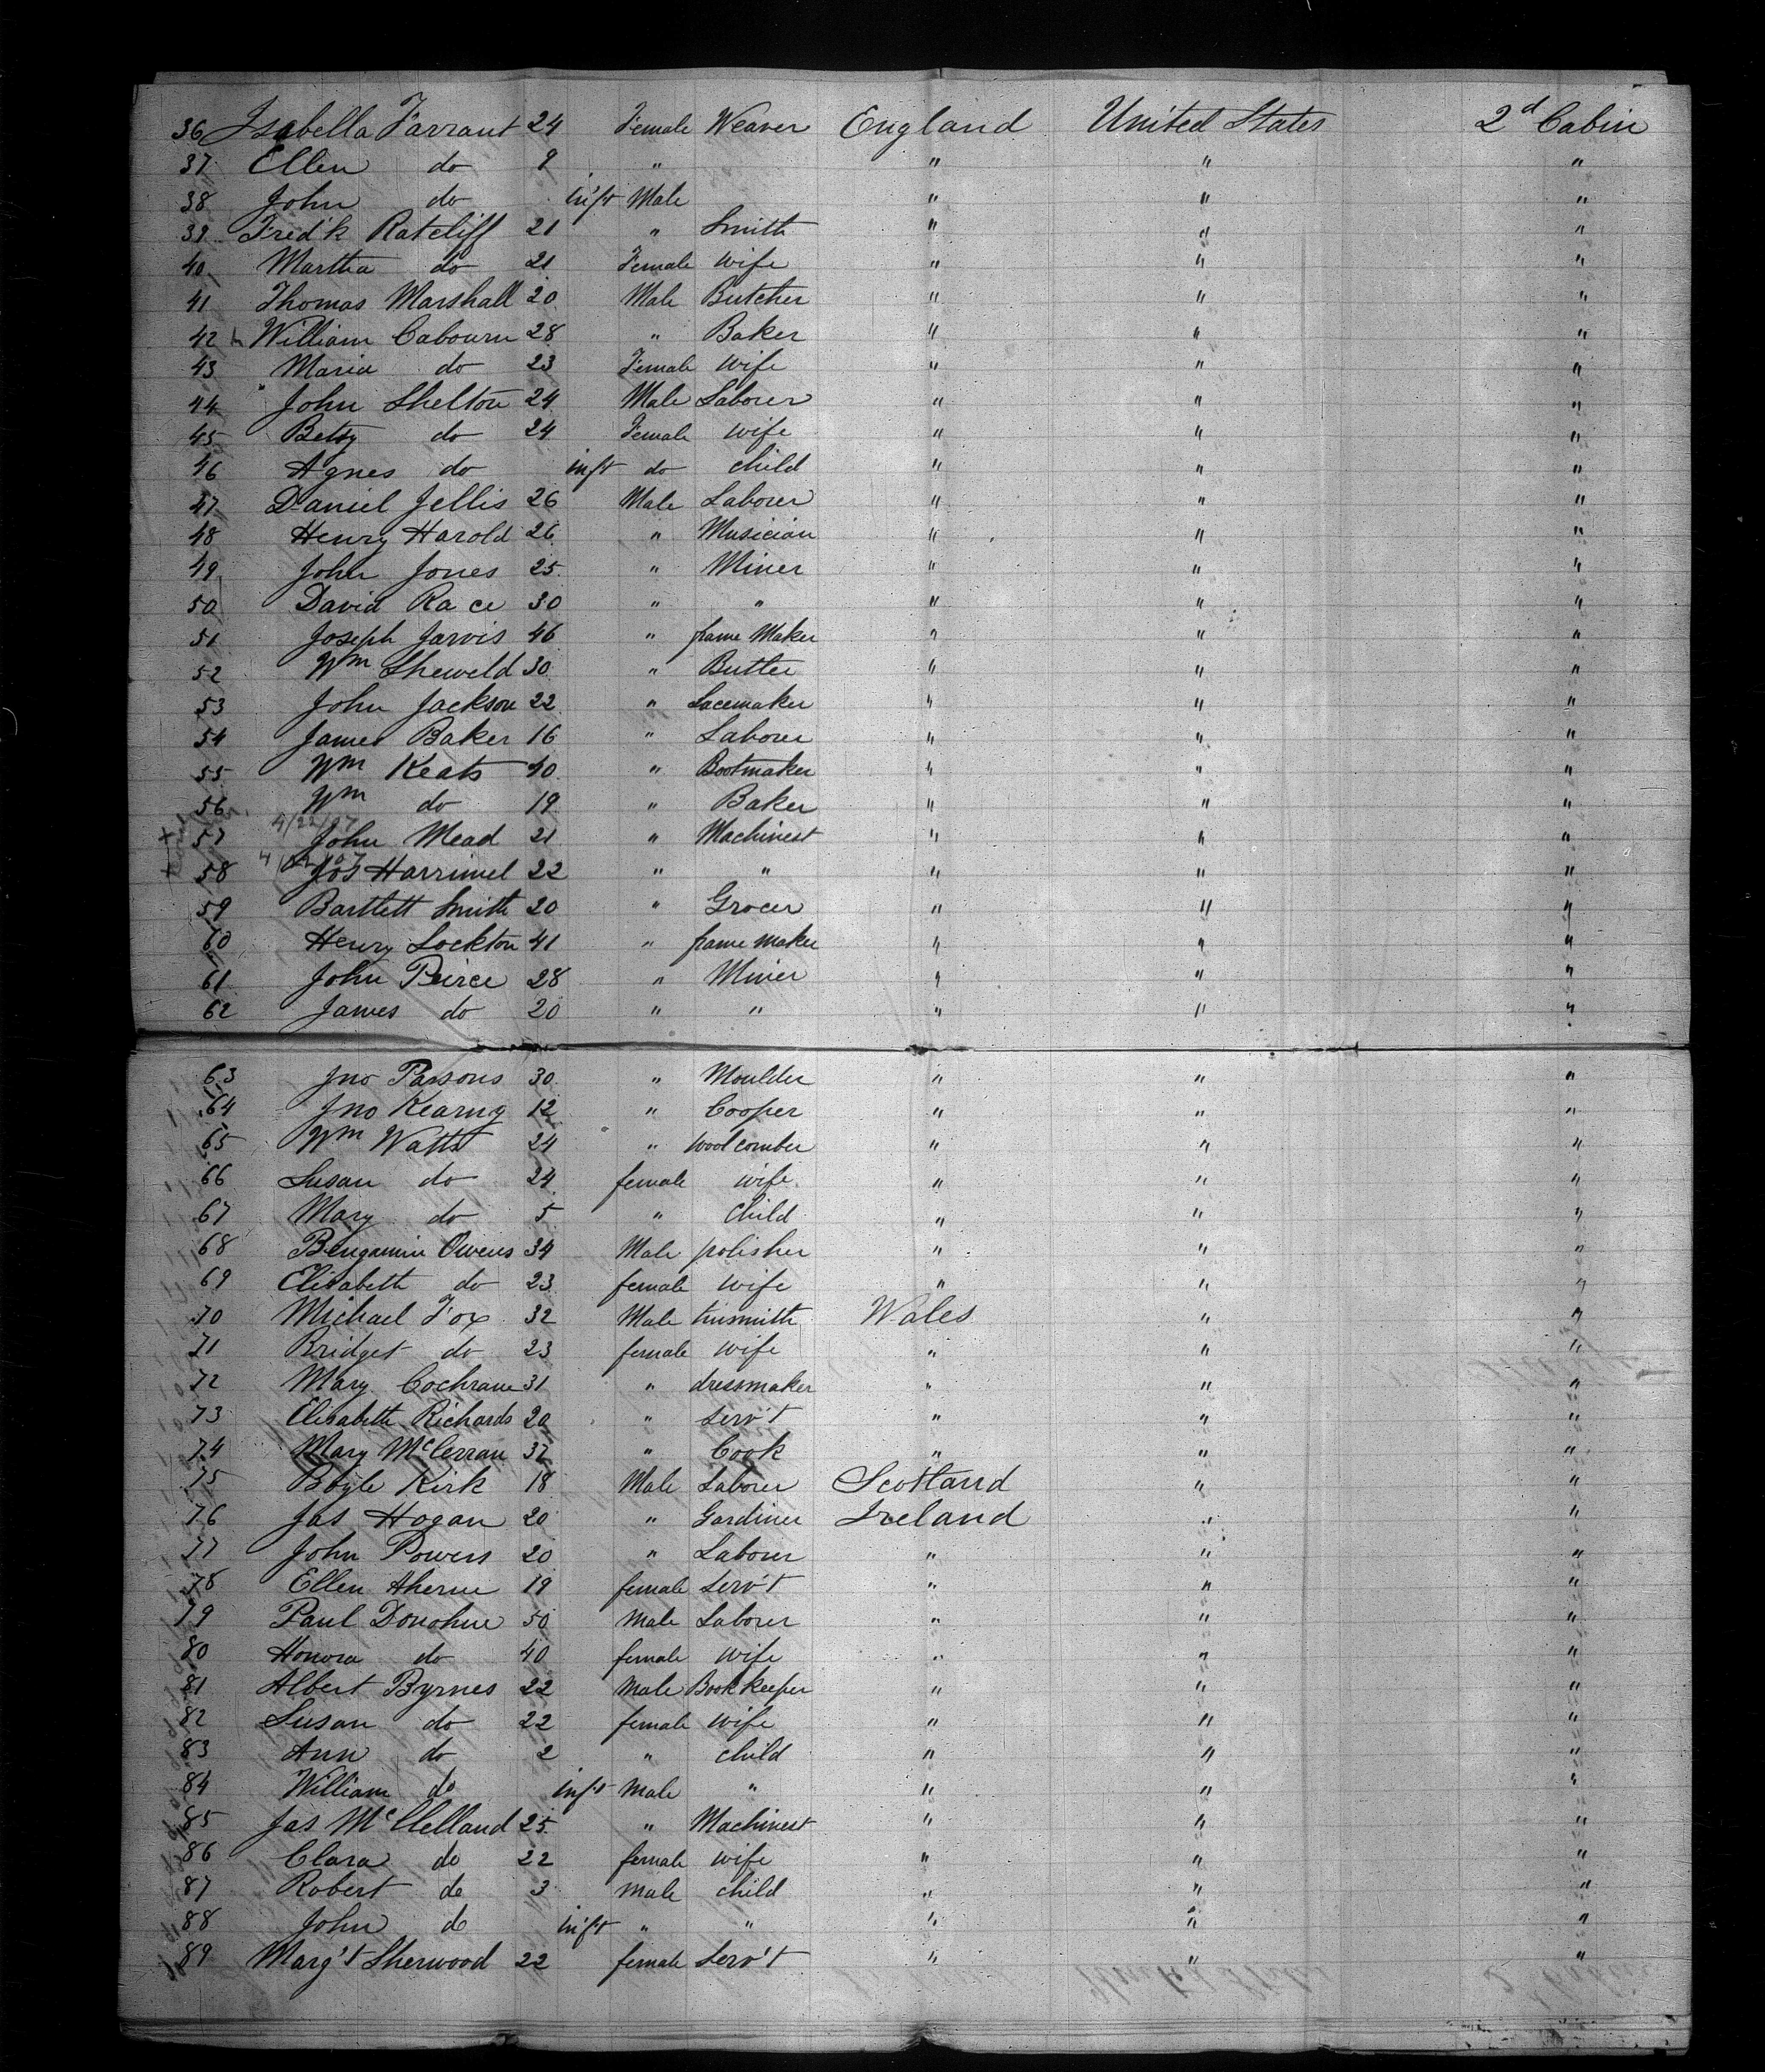 36 Isabella Farrant 24 Female Weaver England United States 2d Cabin
37 Ellen do 9 " " " "
38 John do inft Male " " "
39 Fred'k Ratcliff 21 " Smith " " "
40 Martha do 21 Female wife " " "
41 Thomas Marshall 20 Male Butcher " " "
42 William Cabourn 28 " Baker " " "
43 Maria do 23 Female wife " " "
44 John Shelton 24 Male Laborer " " "
45 Betsy do 24 Female wife " " "
46 Agnes do inft do child " " "
47 Daniel Jellis 26 Male Laborer " " "
48 Henry Harold 26 " Musician " " "
49 John Jones 25 " Miner " " "
50 David Race 30 " " " " "
51 Joseph Jarvis 46 " frame Maker " " "
52 Wm Sheweld 30 " Butler " " "
53 John Jackson 22 " Lacemaker " " "
54 James Baker 16 " Laborer " " "
55 Wm Keats 40 " Bootmaker " " "
56 Wm do 19 " Baker " " "
4/22/07
57 John Mead 21 " Machinest " " "
58 Jos Harrimel 22 " " " " "
59 Bartlett Smith 20 " Grocer " " "
60 Henry Lockton 41 " frame maker " " "
61 John Peirce 28 " Miner " " "
62 James do 20 " " " " "
63 Jno Parsons 30 " Moulder " " "
64 Jno Kearny 12 " Cooper " " "
65 Wm Watts 24 " wool comber " " "
66 Susan do 24 female wife " " "
67 Mary do 5 " child " " "
68 Bengamin Owens 34 Male polisher " " "
69 Elisabeth do 23 female wife " " "
70 Michael Fox 32 Male tinsmith Wales " "
71 Bridget do 23 female wife " " "
72 Mary Cochrane 31 " dressmaker " " "
73 Elisabeth Richards 20 " serv't " " "
74 Mary McCerran 37 " Cook " " "
75 Boyle Kirk 18 Male Laborer Scotland " "
76 Jas Hogan 20 " Gardiner Ireland " "
77 John Powers 20 " Laborer " " "
78 Ellen Aherne 19 female serv't " " "
79 Paul Donohue 50 Male Laborer " " "
80 Honora do 40 female wife " " "
81 Albert Byrnes 22 Male Bookkeeper " " "
82 Susan do 22 female wife " " "
83 Ann do 2 " child " " "
84 William do inft male " " " "
85 Jas McClelland 25 " Machinest " " "
86 Clara do 22 female wife " " "
87 Robert do 3 male child " " "
88 John do inft " " " " "
89 Marg't Sherwood 22 female Serv't " " "